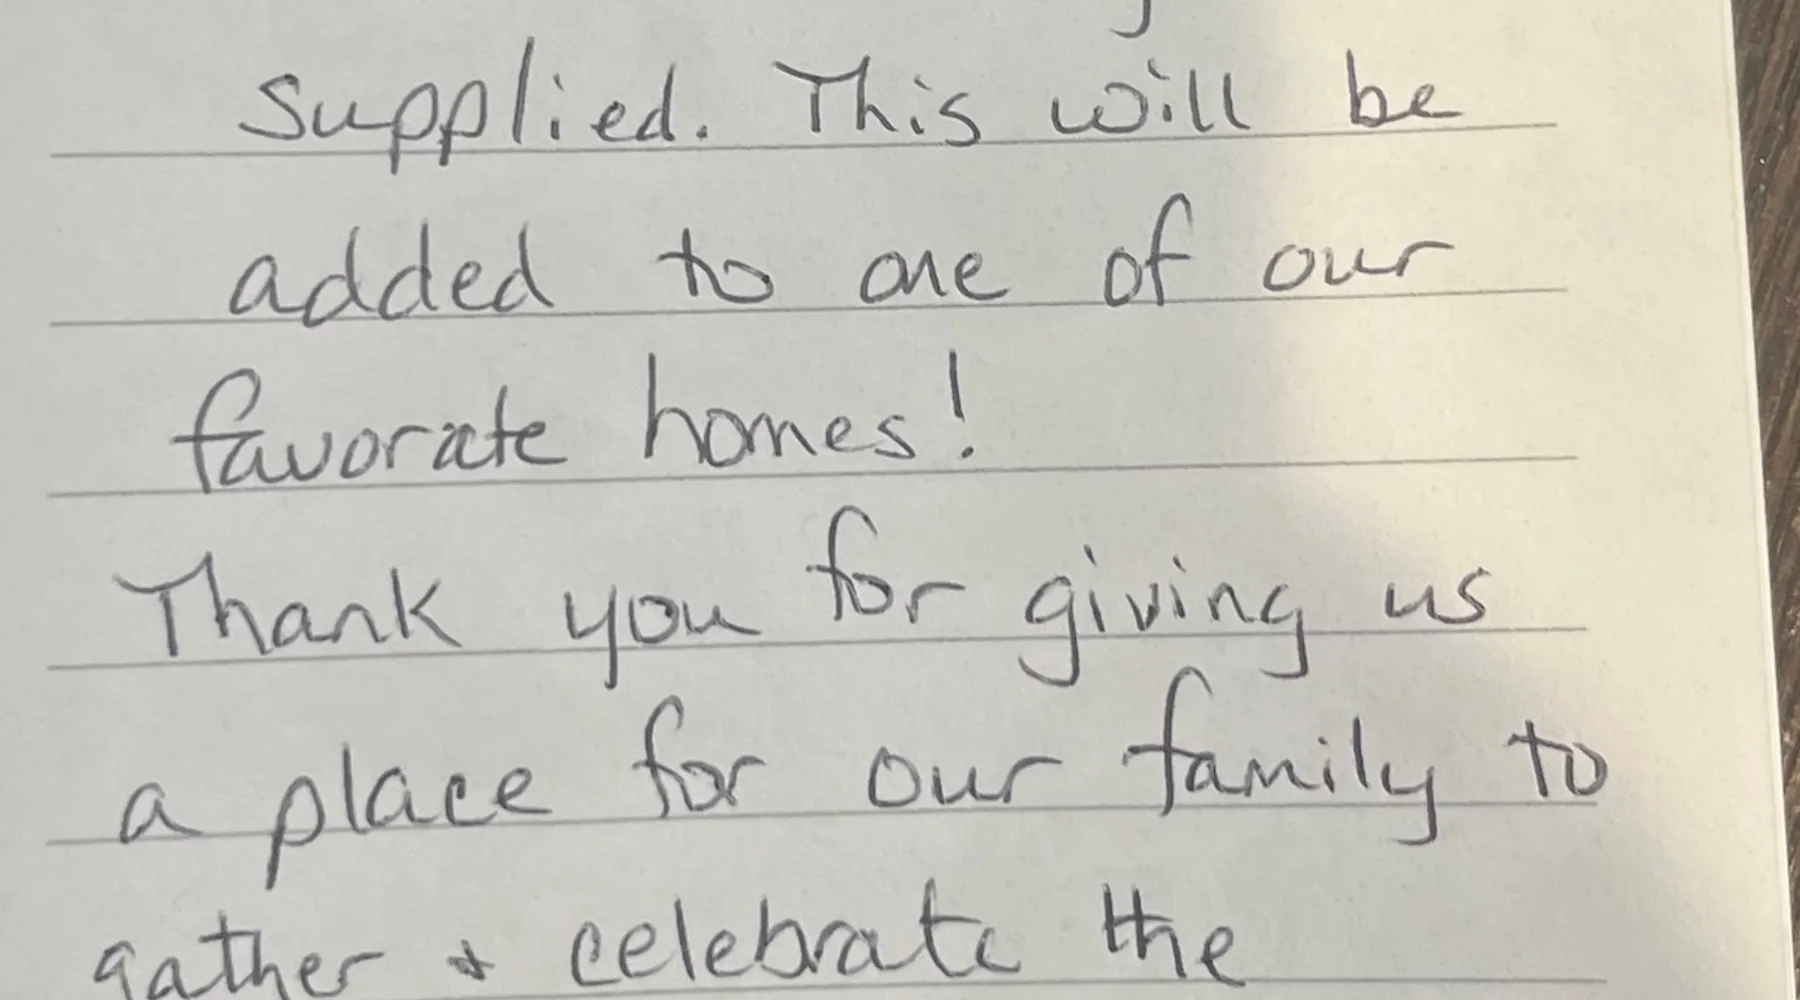 supplied. This will be
added to one of our
favorate homes!
Thank you for giving us
a place for our family to
gather + celebrate the